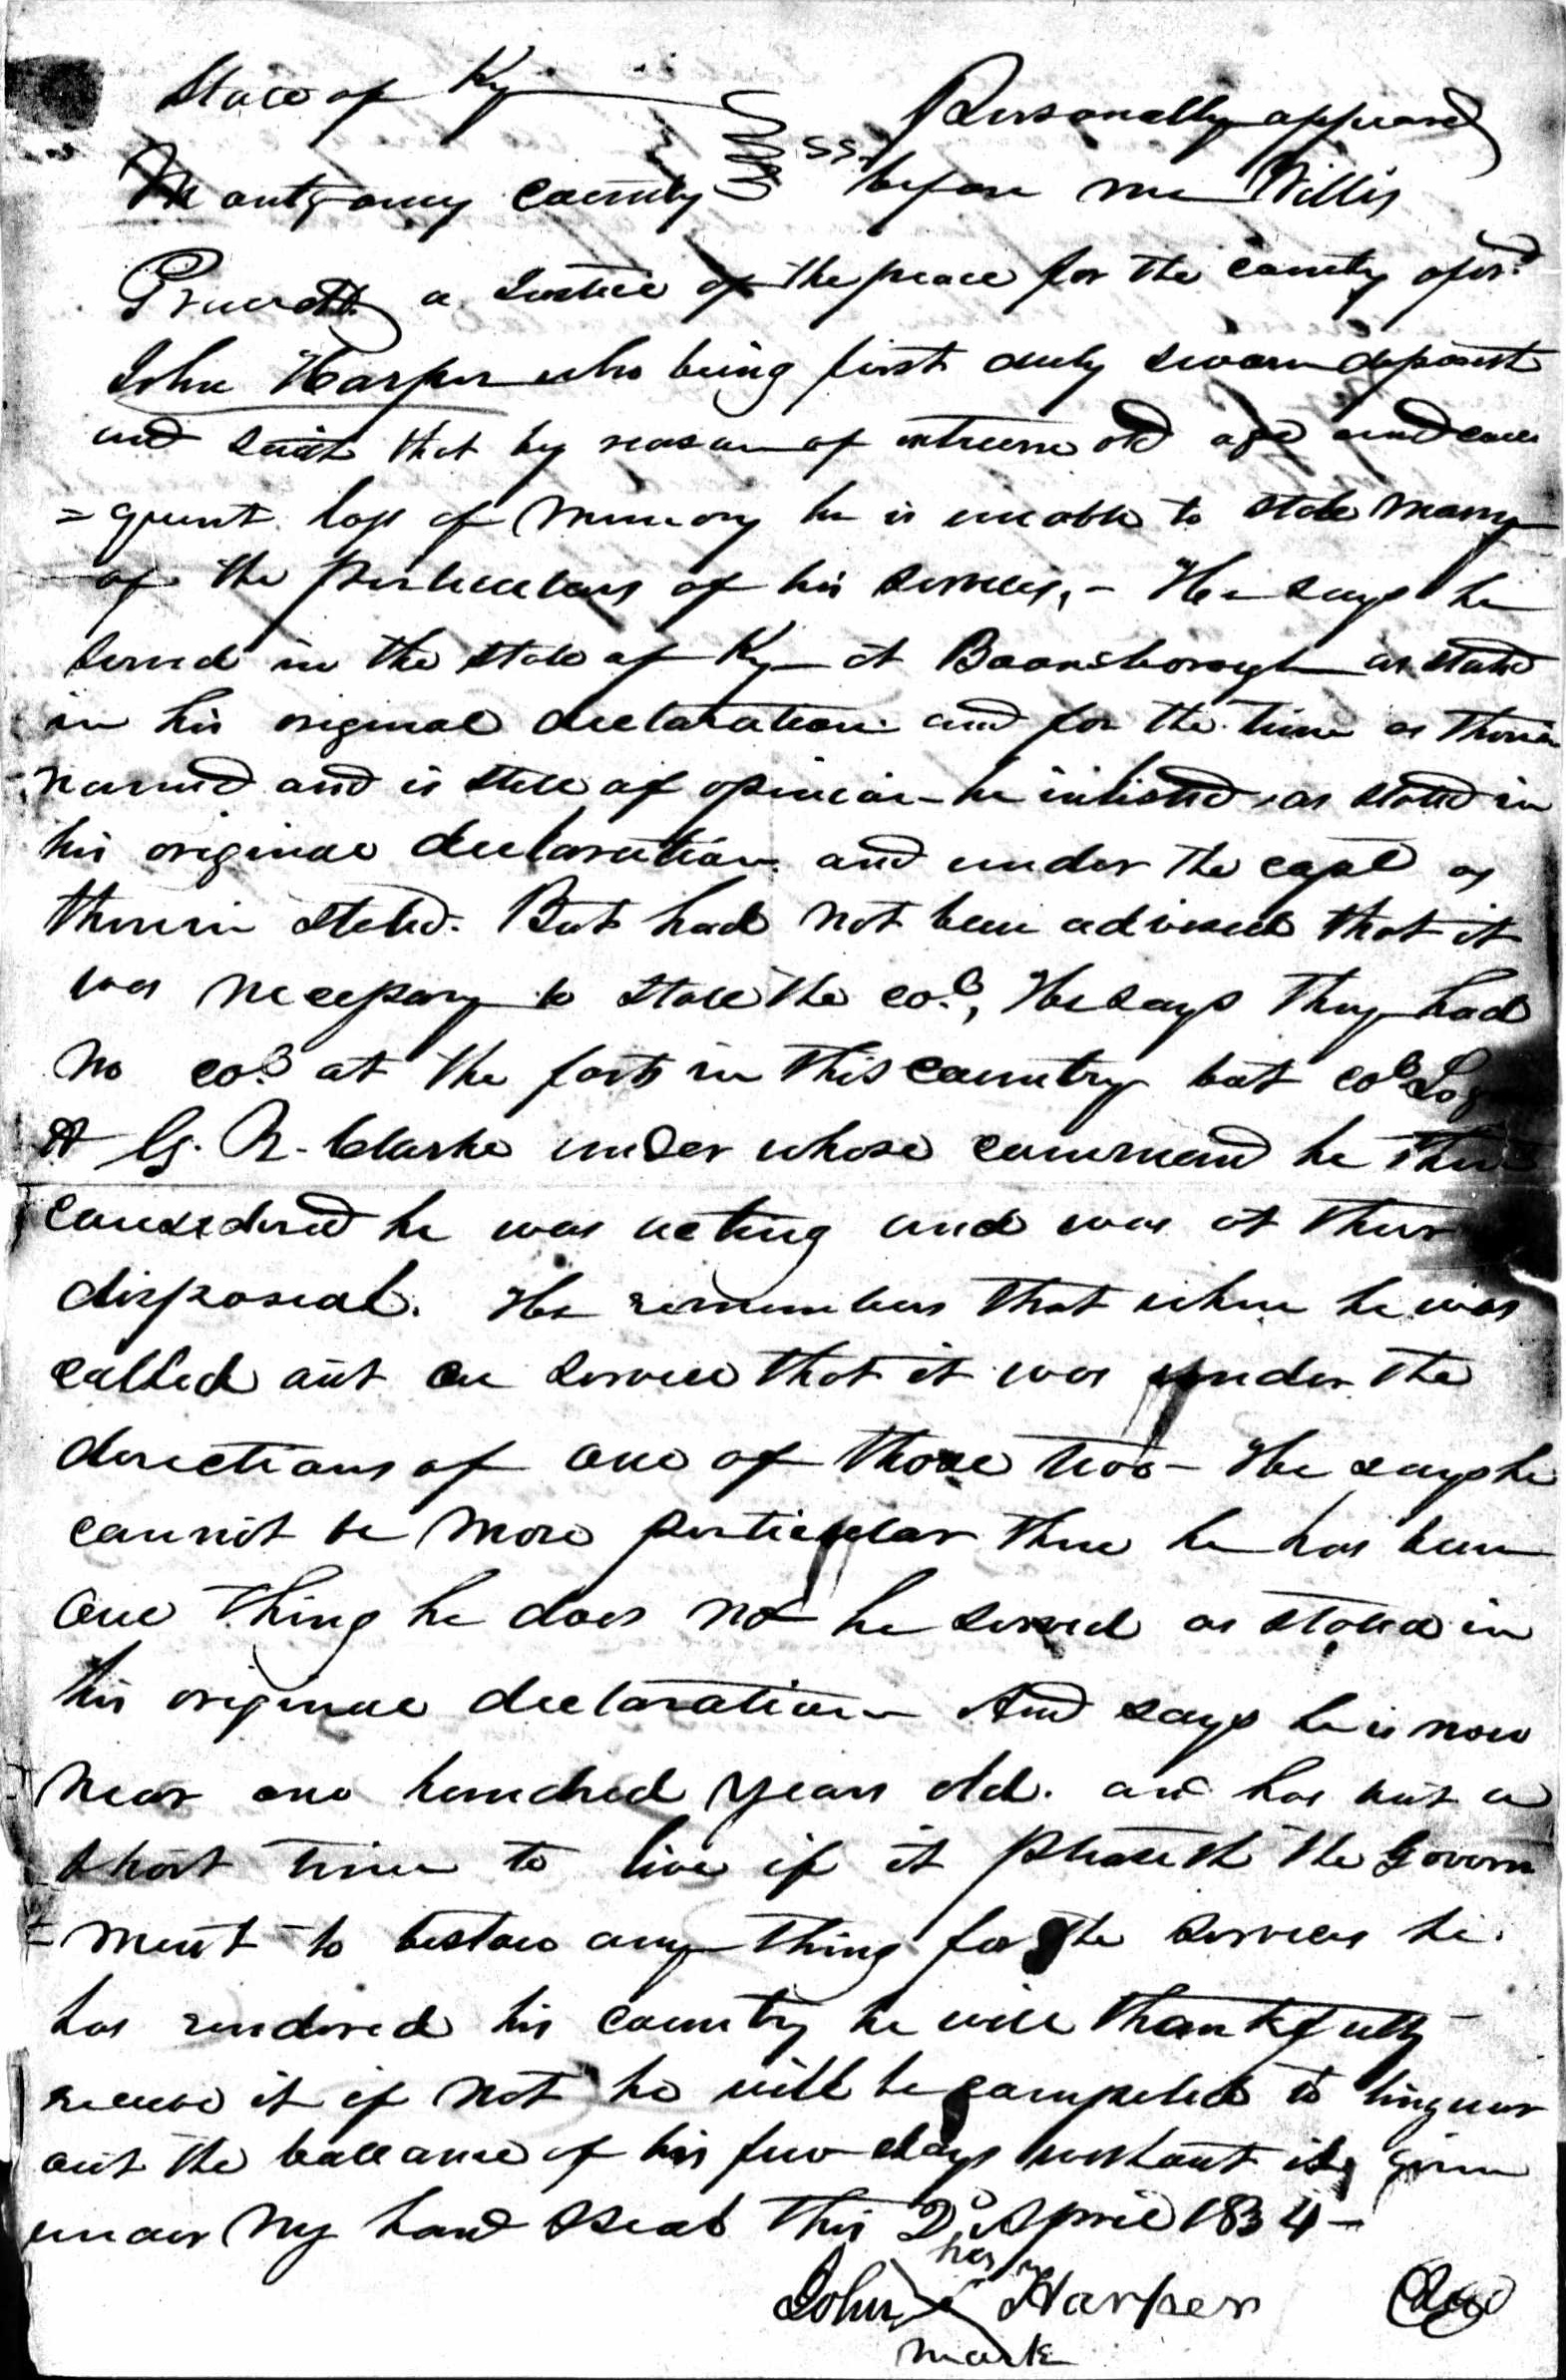 State of Ky
Personally appeared
Montgomry County SS. before me Willis
Pruett a Justice of the peace for the county afors.d
John Harper who being first duly sworn deposeth
and saith that by reason of extreem old age and conse
=quent loss of memory he is unable to state many
of the particulars of his services, - He says he
served in the state of Ky at Boonsborough as stated
in his original declaration and for the time as therein
named and is still of opinion he inlisted as stated in
his original declaration and under the capt as
therein stated. But had not been advised that it
was necessary to state the col., He says they had
no col. at the forts in this country but col Log
& G. R. Clarke under whose command he then
considered he was acting and was at their
disposeal. He remembers that when he was
called out on service that it was under the
directions of one of those two - He says he
cannot be more perticular then he has been
One thing he does no he served as stated in
his original declaration And says he is now
near one hundred years old. and has but a
short time to live if it pleaseth the Govern
=ment to bestow any thing for the services he
has rendered his country he will thankfully
receive it if not he will be compeled to linguer
out the ballance of his few days without it, Given
under My hand & Seal this 2d April 1834 -
his
John X Harper
mark